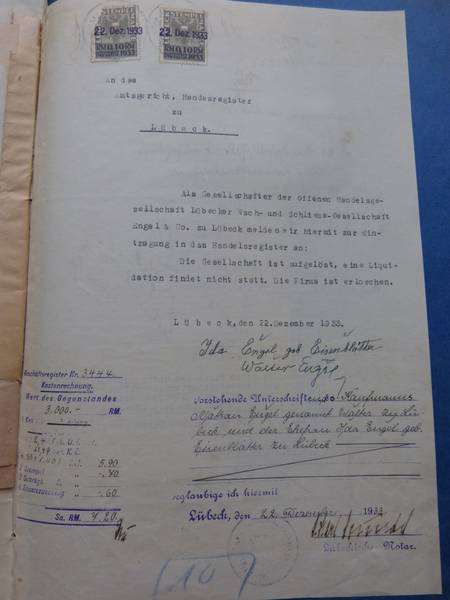 22. Dez. 1933 22. Dez. 1933
An das
Amtsgericht, Handesregister
zu
Lübeck.
Als Gesellschafter der offenen Handelsge-
sellschaft Lübecker Wach- und Schliess-Gesellschaft
Engel & Co. zu Lübeck melden wir hiermit zur Ein-
tragung in das Handelsregister an:
Die Gesellschaft ist aufgelöst, eine Liqui-
dation findet nicht statt. Die Firma ist erloschen.
Lübeck, den 22. Dezember 1933.
Ida Engel geb Eisenblätter
Walter Engel
Geschäftsregister Nr. 3444
Kostenrechnung.
Wert des Gegenstandes
3.000.- RM.
5.90
-.40
-.60
Sa. RM.
vorstehende Unterschriften des Kaufmanns
Nathan Engel genannt Walter zu Lü-
beck und der Ehefrau Ida Engel geb.
Eisenblätter zu Lübeck
beglaubige ich hiermit
Lübeck, den 22. Dezember 1933
Lübeckischer Notar.
(10)